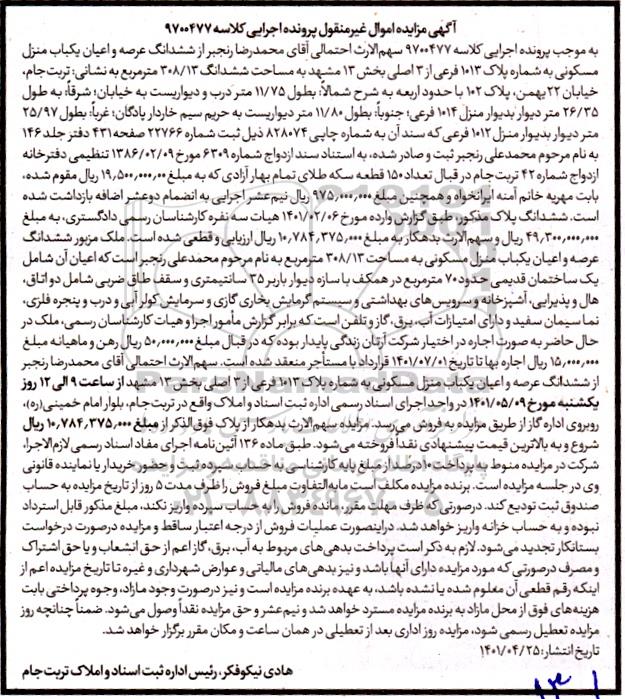 آگهی مزایده اموال غیرمنقول پرونده اجرایی کلاسه ۹۷۰۰۴۷۷
به موجب پرونده اجرایی کلاسه ۹۷۰۰۴۷۷ سهم‌الارث احتمالی آقای محمدرضا رنجبر از ششدانگ عرصه و اعیان یکباب منزل
مسکونی به شماره پلاک ۱۰۱۳ فرعی از ۳ اصلی بخش ۱۳ مشهد به مساحت ششدانگ ۳۰۸/۱۳ مترمربع به نشانی: تربت‌جام،
خیابان ۲۲ بهمن، پلاک ۱۰۲ با حدود اربعه به شرح شمالاً: بطول ۱۱/۷۵ متر درب و دیواریست به خیابان؛ شرقاً: به طول
۲۶/۳۵ متر دیوار بدیوار منزل ۱۰۱۴ فرعی؛ جنوباً: بطول ۱۱/۸۰ متر دیواریست به حریم سیم خاردار پادگان؛ غرباً: بطول ۲۵/۹۷
متر دیوار بدیوار منزل ۱۰۱۲ فرعی که سند آن به شماره چاپی ۸۲۸۰۷۴ ذیل ثبت شماره ۲۲۷۶۶ صفحه ۴۳۱ دفتر جلد ۱۴۶
به نام مرحوم محمدعلی رنجبر ثبت و صادر شده، به استناد سند ازدواج شماره ۶۳۰۹ مورخ ۱۳۸۶/۰۲/۰۹ تنظیمی دفترخانه
ازدواج شماره ۴۲ تربت‌جام در قبال تعداد ۱۵۰ قطعه سکه طلای تمام بهار آزادی که به مبلغ ۱۹,۵۰۰,۰۰۰,۰۰ ریال مقوم شده،
بابت مهریه خانم آمنه ایرانخواه و همچنین مبلغ ۹۷۵,۰۰۰,۰۰۰ ریال نیم‌عشر اجرایی به انضمام دوعشر اضافه بازداشت شده
است. ششدانگ پلاک مذکور، طبق گزارش وارده مورخ ۱۴۰۱/۰۲/۰۶ هیات سه نفره کارشناسان رسمی دادگستری، به مبلغ
۴۹,۳۰۰,۰۰۰,۰۰۰ ریال و سهم‌الارث بدهکار به مبلغ ۱۰,۷۸۴,۳۷۵,۰۰۰ ریال ارزیابی و قطعی شده است. ملک مزبور ششدانگ
عرصه و اعیان یکباب منزل مسکونی به مساحت ۳۰۸/۱۳ مترمربع به نام مرحوم محمدعلی رنجبر است که اعیان آن شامل
یک ساختمان قدیمی حدود ۷۰ مترمربع در همکف با سازه دیوار باربر ۳۵ سانتیمتری و سقف طاق ضربی شامل دو اتاق،
هال و پذیرایی، آشپزخانه و سرویس‌های بهداشتی و سیستم گرمایش بخاری گازی و سرمایش کولر آبی و درب و پنجره فلزی،
نما سیمان سفید و دارای امتیازات آب، برق، گاز و تلفن است که برابر گزارش مأمور اجرا و هیات کارشناسان رسمی، ملک در
حال حاضر به صورت اجاره در اختیار شرکت آرتان زندگی پایدار بوده که در قبال مبلغ ۵۰,۰۰۰,۰۰۰ ریال رهن و ماهیانه مبلغ
۱۵,۰۰۰,۰۰۰ ریال اجاره بها تا تاریخ ۱۴۰۱/۰۷/۰۱ قرارداد با مستأجر منعقد شده است. سهم‌الارث احتمالی آقای محمدرضا رنجبر
از ششدانگ عرصه و اعیان یکباب منزل مسکونی به شماره پلاک ۱۰۱۳ فرعی از ۳ اصلی بخش ۱۳ مشهد از ساعت ۹ الی ۱۲ روز
یکشنبه مورخ ۱۴۰۱/۰۵/۰۹ در واحد اجرای اسناد رسمی اداره ثبت اسناد و املاک واقع در تربت‌جام، بلوار امام خمینی(ره)،
روبروی اداره گاز از طریق مزایده به فروش می‌رسد. مزایده سهم‌الارث بدهکار از پلاک فوق‌الذکر از مبلغ ۱۰,۷۸۴,۳۷۵,۰۰۰ ریال
شروع و به بالاترین قیمت پیشنهادی نقداً فروخته می‌شود. طبق ماده ۱۳۶ آئین‌نامه اجرای مفاد اسناد رسمی لازم‌الاجرا،
شرکت در مزایده منوط به پرداخت ۱۰ درصد از مبلغ پایه کارشناسی به حساب سپرده ثبت و حضور خریدار یا نماینده قانونی
وی در جلسه مزایده است. برنده مزایده مکلف است مابه‌التفاوت مبلغ فروش را ظرف مدت ۵ روز از تاریخ مزایده به حساب
صندوق ثبت تودیع کند. درصورتی که ظرف مهلت مقرر، مانده فروش را به حساب سپرده واریز نکند، مبلغ مذکور قابل استرداد
نبوده و به حساب خزانه واریز خواهد شد. دراینصورت عملیات فروش از درجه اعتبار ساقط و مزایده درصورت درخواست
بستانکار تجدید می‌شود. لازم به ذکر است پرداخت بدهی‌های مربوط به آب، برق، گاز اعم از حق انشعاب و یا حق اشتراک
و مصرف درصورتی که مورد مزایده دارای آنها باشد و نیز بدهی‌های مالیاتی و عوارض شهرداری و غیره تا تاریخ مزایده اعم از
اینکه رقم قطعی آن معلوم شده یا نشده باشد، به عهده برنده مزایده است و نیز درصورت وجود مازاد، وجوه پرداختی بابت
هزینه‌های فوق از محل مازاد به برنده مزایده مسترد خواهد شد و نیم‌عشر و حق مزایده نقداً وصول می‌شود. ضمناً چنانچه روز
مزایده تعطیل رسمی شود، مزایده روز اداری بعد از تعطیلی در همان ساعت و مکان مقرر برگزار خواهد شد.
تاریخ انتشار: ۱۴۰۱/۰۴/۲۵
هادی نیکوفکر، رئیس اداره ثبت اسناد و املاک تربت‌جام